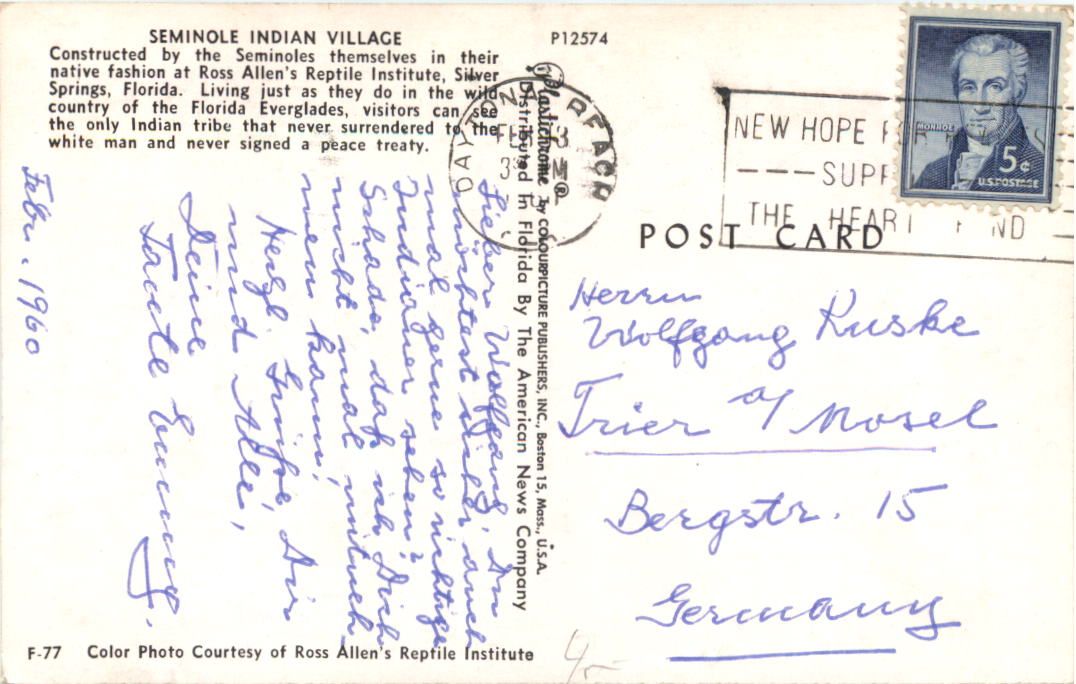 SEMINOLE INDIAN VILLAGE
Constructed by the Seminoles themselves in their
native fashion at Ross Allen's Reptile Institute, Silver
Springs, Florida. Living just as they do in the wild
country of the Florida Everglades, visitors can see
the only Indian tribe that never surrendered to the
white man and never signed a peace treaty.
P12574
Febr. 1960
Lieber Wolfgang, Du
möchtest sicher auch
mal gerne so richtige
Indianer sehen?
Schade, daß ich Dich
nicht mal mitneh-
men kann!
Herzl. Grüße, Dir
und Alle,
Deine
Tante Emmy.
F-77 Color Photo Courtesy of Ross Allen's Reptile Institute
Plastichrome ® by COLOURPICTURE PUBLISHERS, INC., Boston 15, Mass., U.S.A.
Distributed In Florida By The American News Company
DAYTONA BEACH
FEB 3
NEW HOPE
---SUPP
THE HEART FUND
MONROE
5¢
U.S. POSTAGE
POST CARD
Herrn
Wolfgang Kuske
Trier a/ Mosel
Bergstr. 15
Germany
4,-